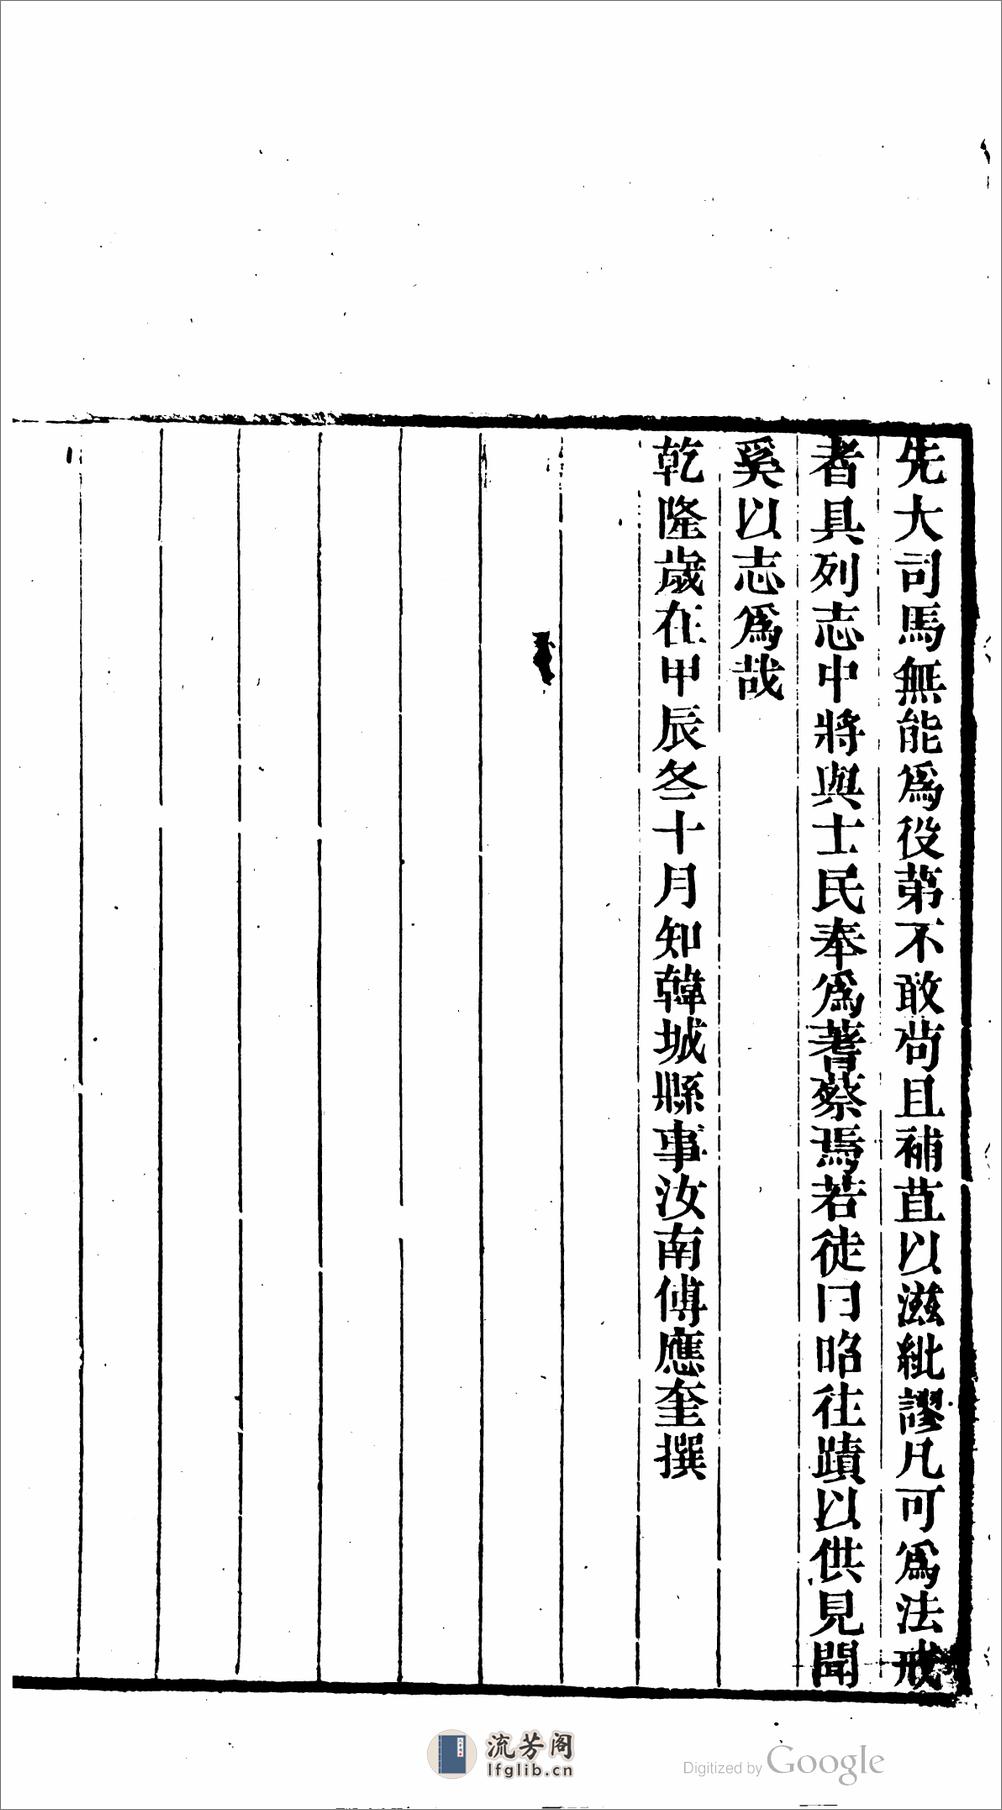 先大司馬無能爲役第不敢苟且補苴以滋紕謬凡可爲法戒
者具列志中將與士民奉爲蓍蔡焉若徒曰昭往蹟以供見聞
奚以志爲哉
乾隆歲在甲辰冬十月知韓城縣事汝南傅應奎撰
流芳阁
lfglib.cn
Digitized by Google